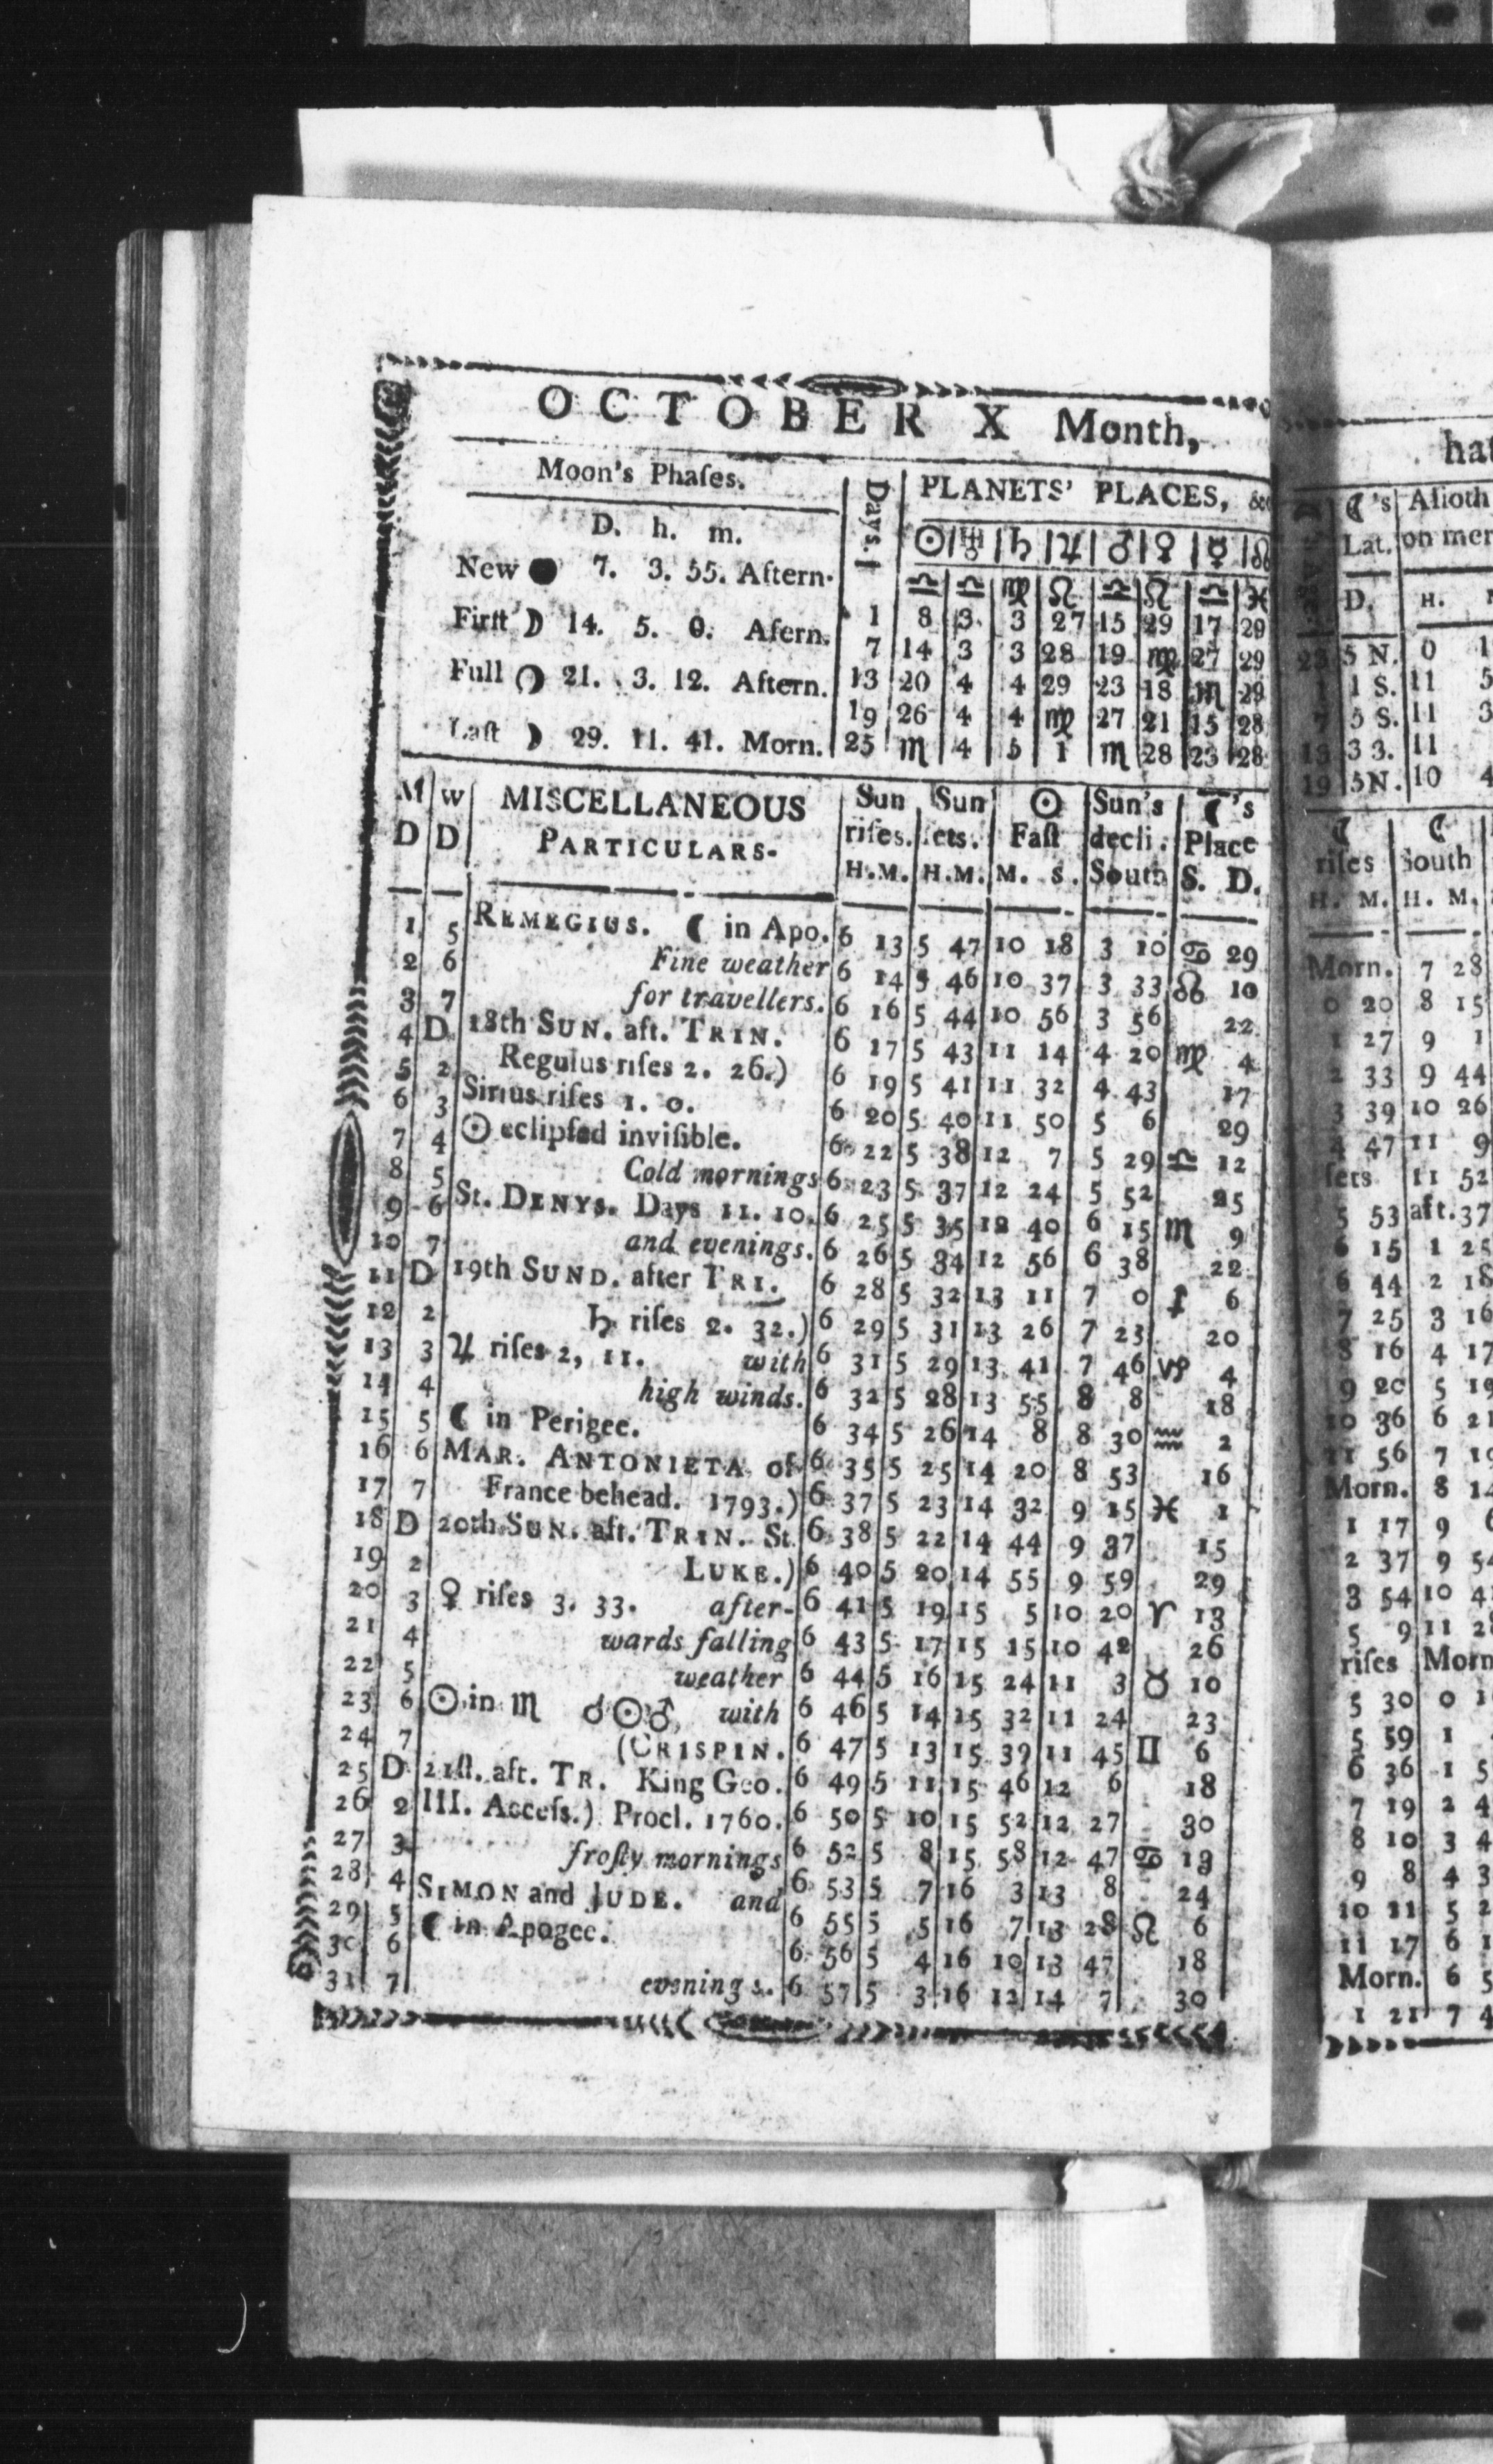 OCTOBER X Month,
Moon's Phaſes.
D. h. m.
New ● 7. 3. 55. Aftern.
Firſt ☽ 14. 5. 0. Afern.
Full 21. 3. 12. Aftern.
Laſt 29. 11. 41. Morn.
Days. PLANETS' PLACES, &c
☉ ♅ ♄ ♃ ♂ ♀ ☿ ☊
♎ ♎ ♍ ♌ ♎ ♌ ♎ ♓
1 8 3 3 27 15 29 17 29
7 14 3 3 28 19 ♍ 27 29
13 20 4 4 29 23 18 ♏ 29
19 26 4 4 ♍ 27 21 15 28
25 ♏ 4 5 1 ♏ 28 23 28
M D W D MISCELLANEOUS PARTICULARS. Sun riſes. H.M. Sun ſets. H.M. ☉ Faſt M. s. Sun's decli. South ☾'s Place S. D.
1 5 REMEGIUS. ☾ in Apo. 6 13 5 47 10 18 3 10 ♋ 29
2 6 Fine weather 6 14 5 46 10 37 3 33 ♌ 10
3 7 for travellers. 6 16 5 44 10 56 3 56 22
4 D 18th SUN. aft. TRIN. 6 17 5 43 11 14 4 20 ♍ 4
5 2 Regulus riſes 2. 26.) 6 19 5 41 11 32 4 43 17
6 3 Sirius riſes 1. 0. 6 20 5 40 11 50 5 6 29
7 4 ☉ eclipſed inviſible. 6 22 5 38 12 7 5 29 ♎ 12
8 5 Cold mornings 6 23 5 37 12 24 5 52 25
9 6 St. DENYS. Days 11. 10. 6 25 5 35 12 40 6 15 ♏ 9
10 7 and evenings. 6 26 5 34 12 56 6 38 22
11 D 19th SUND. after TRI. 6 28 5 32 13 11 7 0 ♐ 6
12 2 ♄ riſes 2. 32.) 6 29 5 31 13 26 7 23 20
13 3 ♃ riſes 2, 11. with 6 31 5 29 13 41 7 46 ♑ 4
14 4 high winds. 6 32 5 28 13 55 8 8 18
15 5 ☾ in Perigee. 6 34 5 26 14 8 8 30 ♒ 2
16 6 MAR. ANTONIETA of 6 35 5 25 14 20 8 53 16
17 7 France behead. 1793.) 6 37 5 23 14 32 9 15 ♓ 1
18 D 20th SUN. aft. TRIN. St. 6 38 5 22 14 44 9 37 15
19 2 LUKE.) 6 40 5 20 14 55 9 59 29
20 3 ♀ riſes 3. 33. after- 6 41 5 19 15 5 10 20 ♈ 13
21 4 wards falling 6 43 5 17 15 15 10 42 26
22 5 weather 6 44 5 16 15 24 11 3 ♉ 10
23 6 ☉ in ♏ ☌ ☉ ♂ with 6 46 5 14 15 32 11 24 23
24 7 (CRISPIN. 6 47 5 13 15 39 11 45 ♊ 6
25 D 21ſt. aft. TR. King Geo. 6 49 5 11 15 46 12 6 18
26 2 III. Acceſs.) Procl. 1760. 6 50 5 10 15 52 12 27 30
27 3 froſty mornings 6 52 5 8 15 58 12 47 ♋ 13
28 4 SIMON and JUDE. and 6 53 5 7 16 3 13 8 24
29 5 ☾ in Apogee. 6 55 5 5 16 7 13 28 ♌ 6
30 6 6 56 5 4 16 10 13 47 18
31 7 evenings. 6 57 5 3 16 12 14 7 30
hat
☾'s Lat. Aſioth
on mer
D. H.
5 N. 0 1
1 S. 11 5
7 5 S. 11 3
13 3 3. 11
19 5N. 10 4
☾ riſes ☾ South
H. M. H. M.
Morn. 7 28
0 20 8 15
1 27 9 1
2 33 9 44
3 39 10 26
4 47 11 9
ſets 11 52
5 53 aft. 37
6 15 1 25
6 44 2 18
7 25 3 16
8 16 4 17
9 20 5 19
10 36 6 21
11 56 7 19
Morn. 8 14
1 17 9 6
2 37 9 54
3 54 10 41
5 9 11 28
riſes Morn
5 30 0 1
5 59 1
6 36 1 5
7 19 2 4
8 10 3 4
9 8 4 3
10 11 5 2
11 17 6 1
Morn. 6 5
1 21 7 4